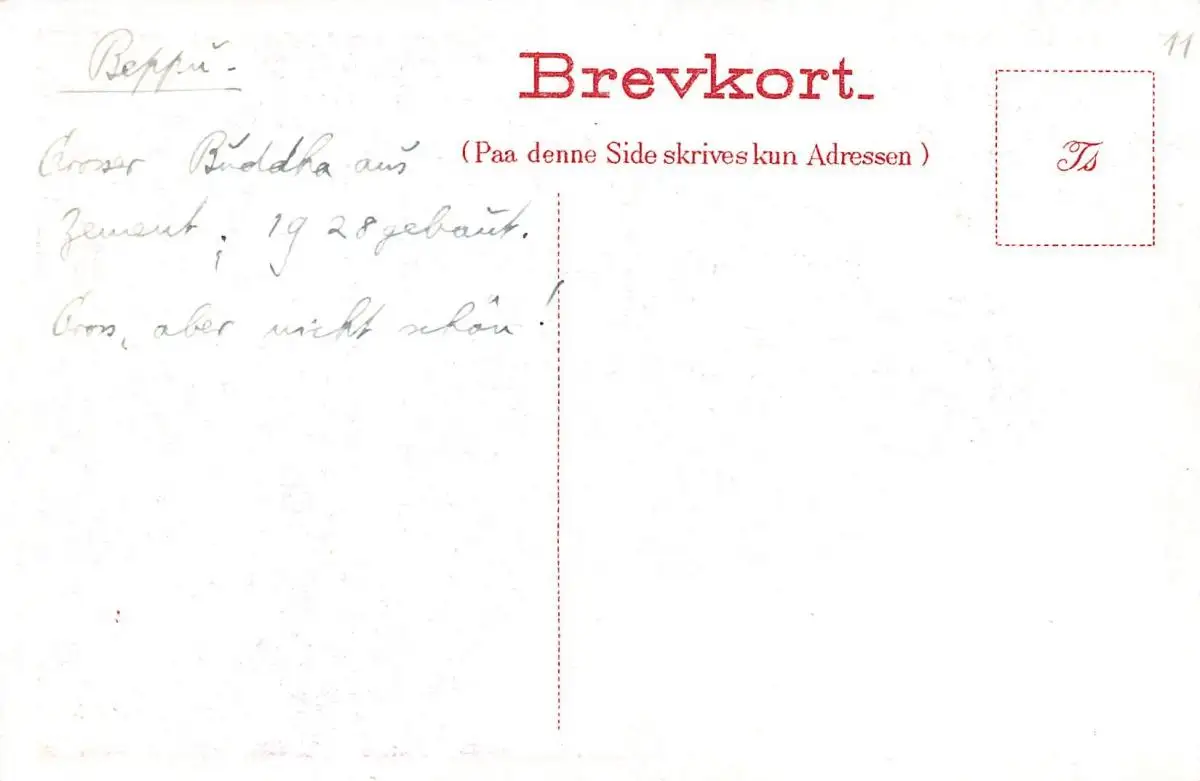 Beppu -
Grosser Buddha aus
Zement; 1928 gebaut.
Gross, aber nicht schön!
Brevkort
(Paa denne Side skrives kun Adressen)
Ts
11